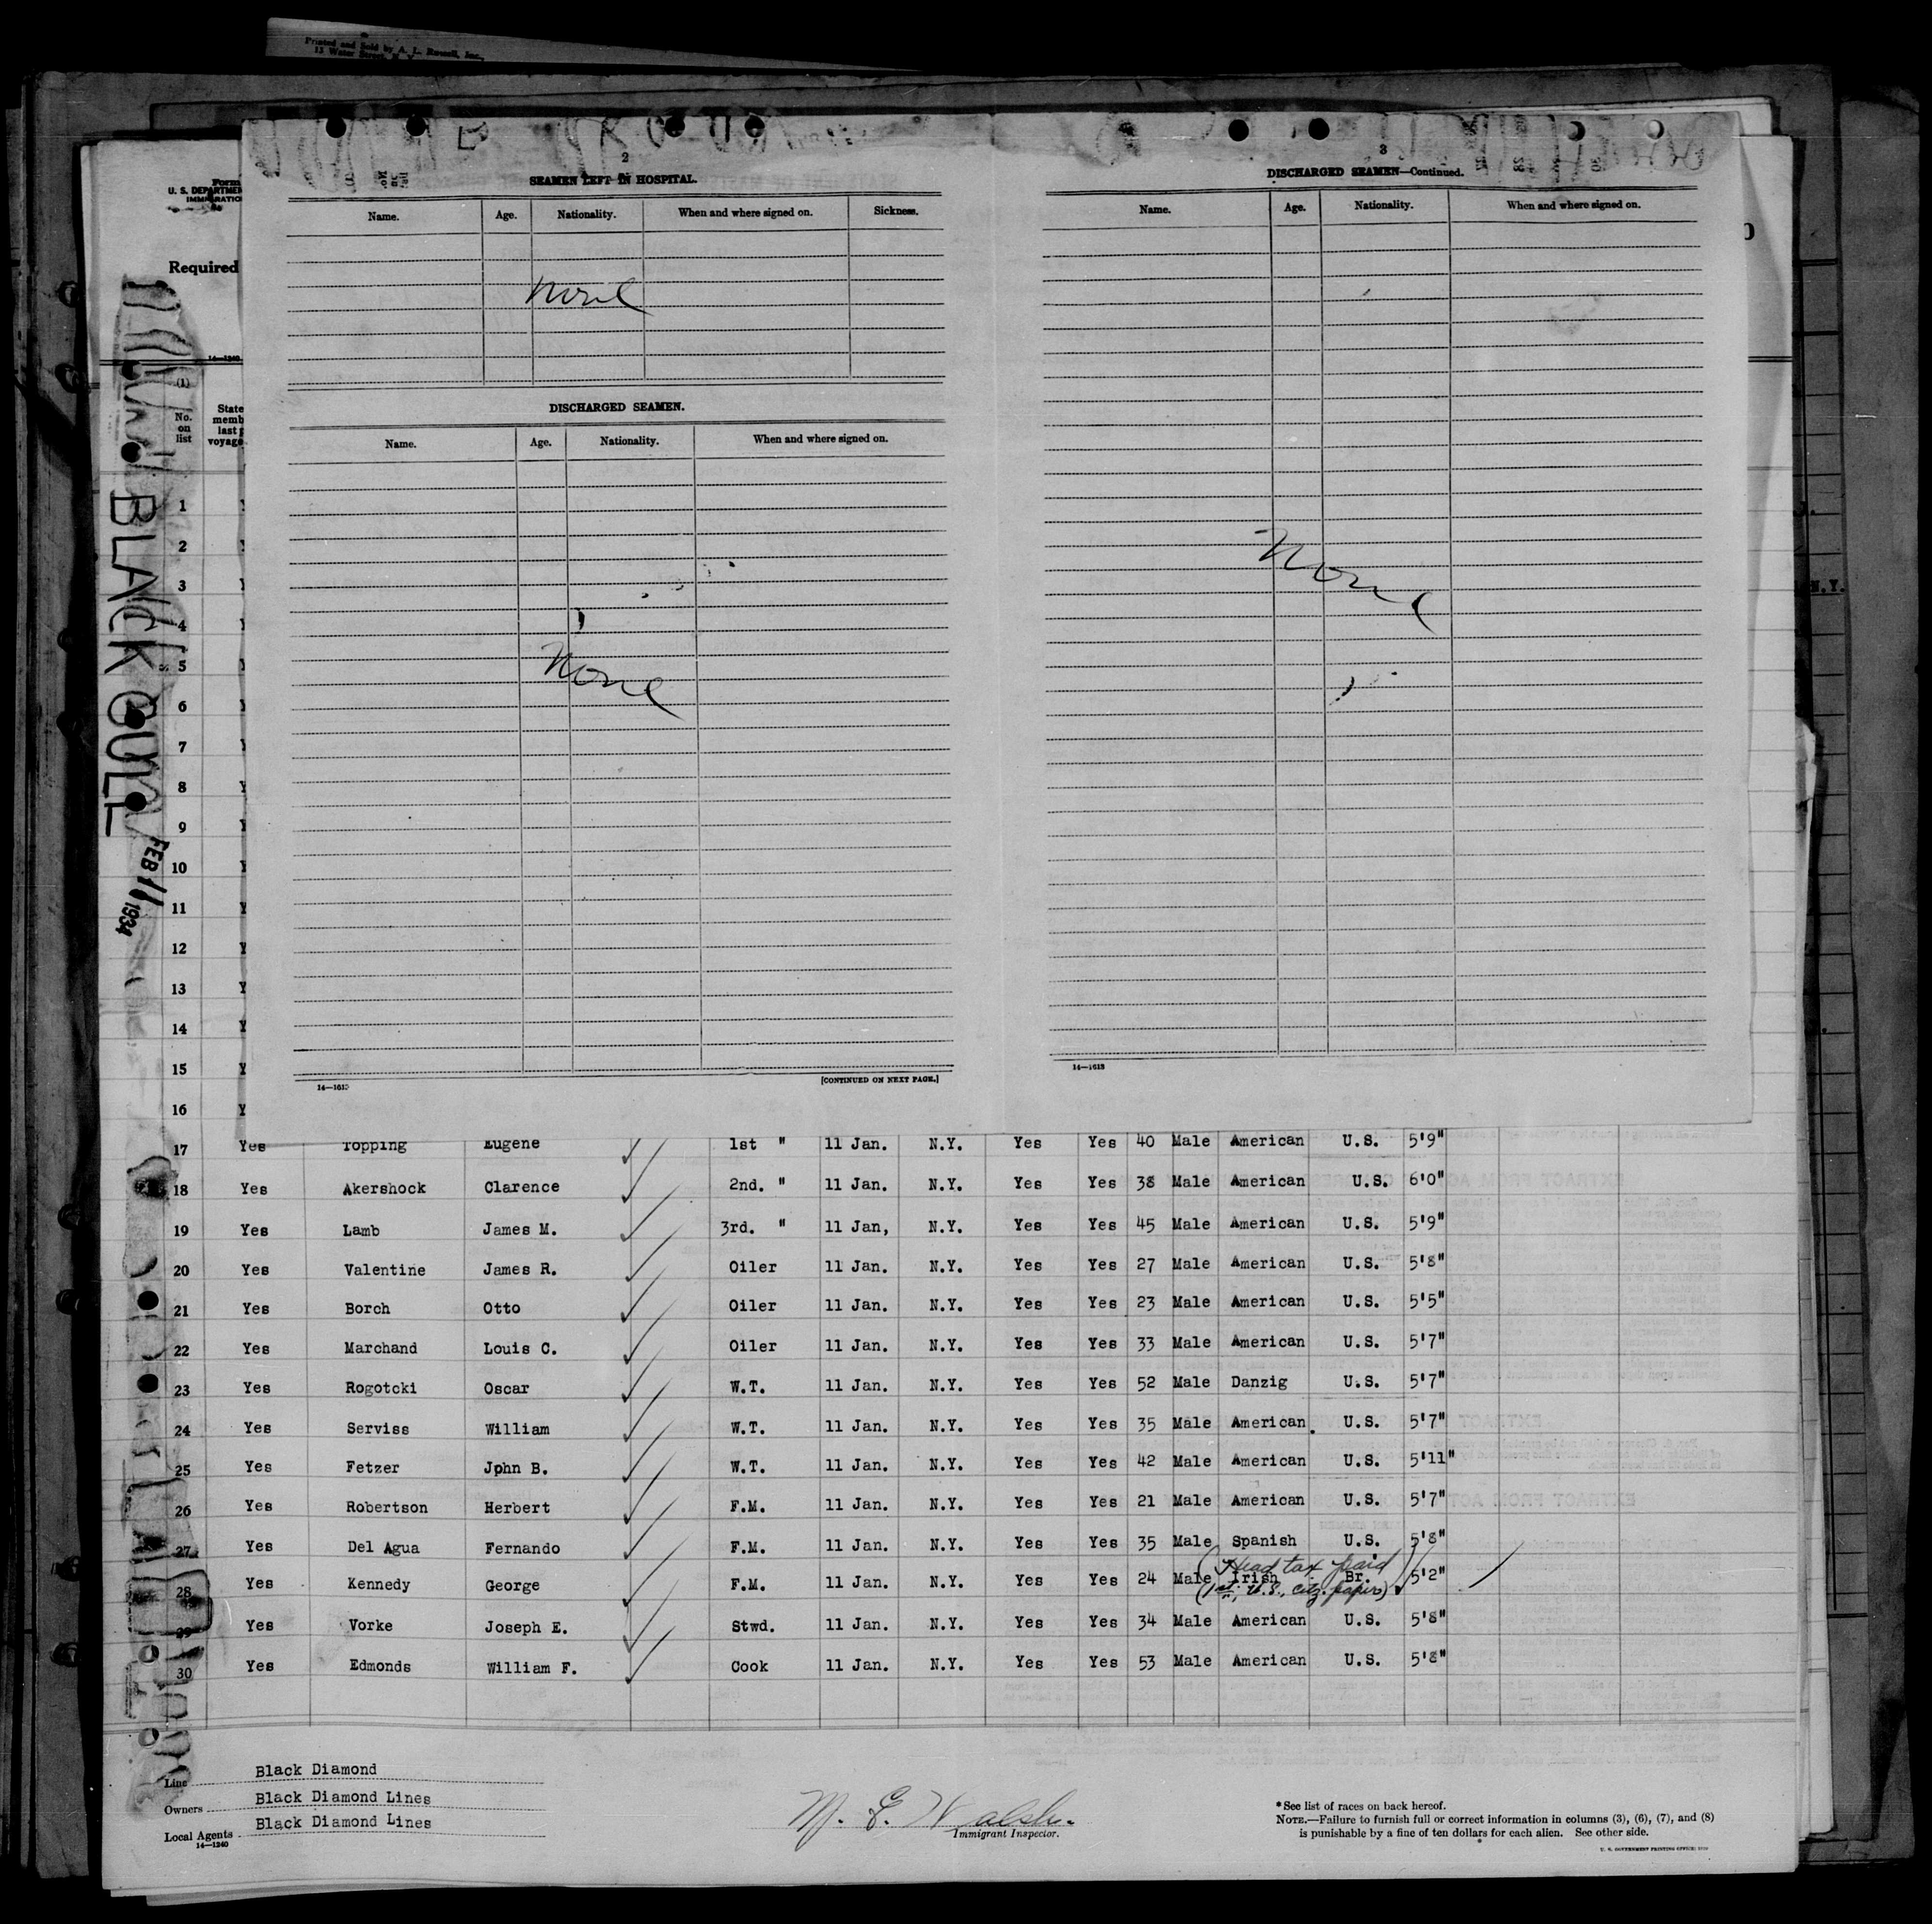 Printed and Sold by A. L. Russell, Inc.,
13 Water
Form
U. S. DEPARTMEN
IMMIGRATIO
Required
14—1240
(1)
No. on list
State
memb
last p
voyage
BLACK GULL
FEB 11 1934
2
SEAMEN LEFT IN HOSPITAL.
Name. Age. Nationality. When and where signed on. Sickness.
None
DISCHARGED SEAMEN.
Name. Age. Nationality. When and where signed on.
None
14—1613
[CONTINUED ON NEXT PAGE.]
3
DISCHARGED SEAMEN—Continued.
Name. Age. Nationality. When and where signed on.
None
14—1613
N.Y.
1 Y
2 Y
3 Y
4 Y
5 Y
6 Y
7 Y
8 Y
9 Y
10 Y
11 Y
12 Y
13 Y
14 Y
15 Y
16 Y
17 Yes Topping Eugene 1st " 11 Jan. N.Y. Yes Yes 40 Male American U.S. 5'9"
18 Yes Akershock Clarence 2nd. " 11 Jan. N.Y. Yes Yes 38 Male American U.S. 6'0"
19 Yes Lamb James M. 3rd. " 11 Jan, N.Y. Yes Yes 45 Male American U.S. 5'9"
20 Yes Valentine James R. Oiler 11 Jan. N.Y. Yes Yes 27 Male American U.S. 5'8"
21 Yes Borch Otto Oiler 11 Jan. N.Y. Yes Yes 23 Male American U.S. 5'5"
22 Yes Marchand Louis C. Oiler 11 Jan. N.Y. Yes Yes 33 Male American U.S. 5'7"
23 Yes Rogotcki Oscar W.T. 11 Jan. N.Y. Yes Yes 52 Male Danzig U.S. 5'7"
24 Yes Serviss William W.T. 11 Jan. N.Y. Yes Yes 35 Male American U.S. 5'7"
25 Yes Fetzer Jphn B. W.T. 11 Jan. N.Y. Yes Yes 42 Male American U.S. 5'11"
26 Yes Robertson Herbert F.M. 11 Jan. N.Y. Yes Yes 21 Male American U.S. 5'7"
27 Yes Del Agua Fernando F.M. 11 Jan. N.Y. Yes Yes 35 Male Spanish U.S. 5'8"
(Head tax paid)
28 Yes Kennedy George F.M. 11 Jan. N.Y. Yes Yes 24 Male Irish Br. 5'2"
(1st U.S. citz. papers)
29 Yes Vorke Joseph E. Stwd. 11 Jan. N.Y. Yes Yes 34 Male American U.S. 5'8"
30 Yes Edmonds William F. Cook 11 Jan. N.Y. Yes Yes 53 Male American U.S. 5'8"
Line Black Diamond
Owners Black Diamond Lines
Local Agents Black Diamond Lines
14—1240
M. E. Walsh.
Immigrant Inspector.
*See list of races on back hereof.
NOTE.—Failure to furnish full or correct information in columns (3), (6), (7), and (8)
is punishable by a fine of ten dollars for each alien. See other side.
U. S. GOVERNMENT PRINTING OFFICE: